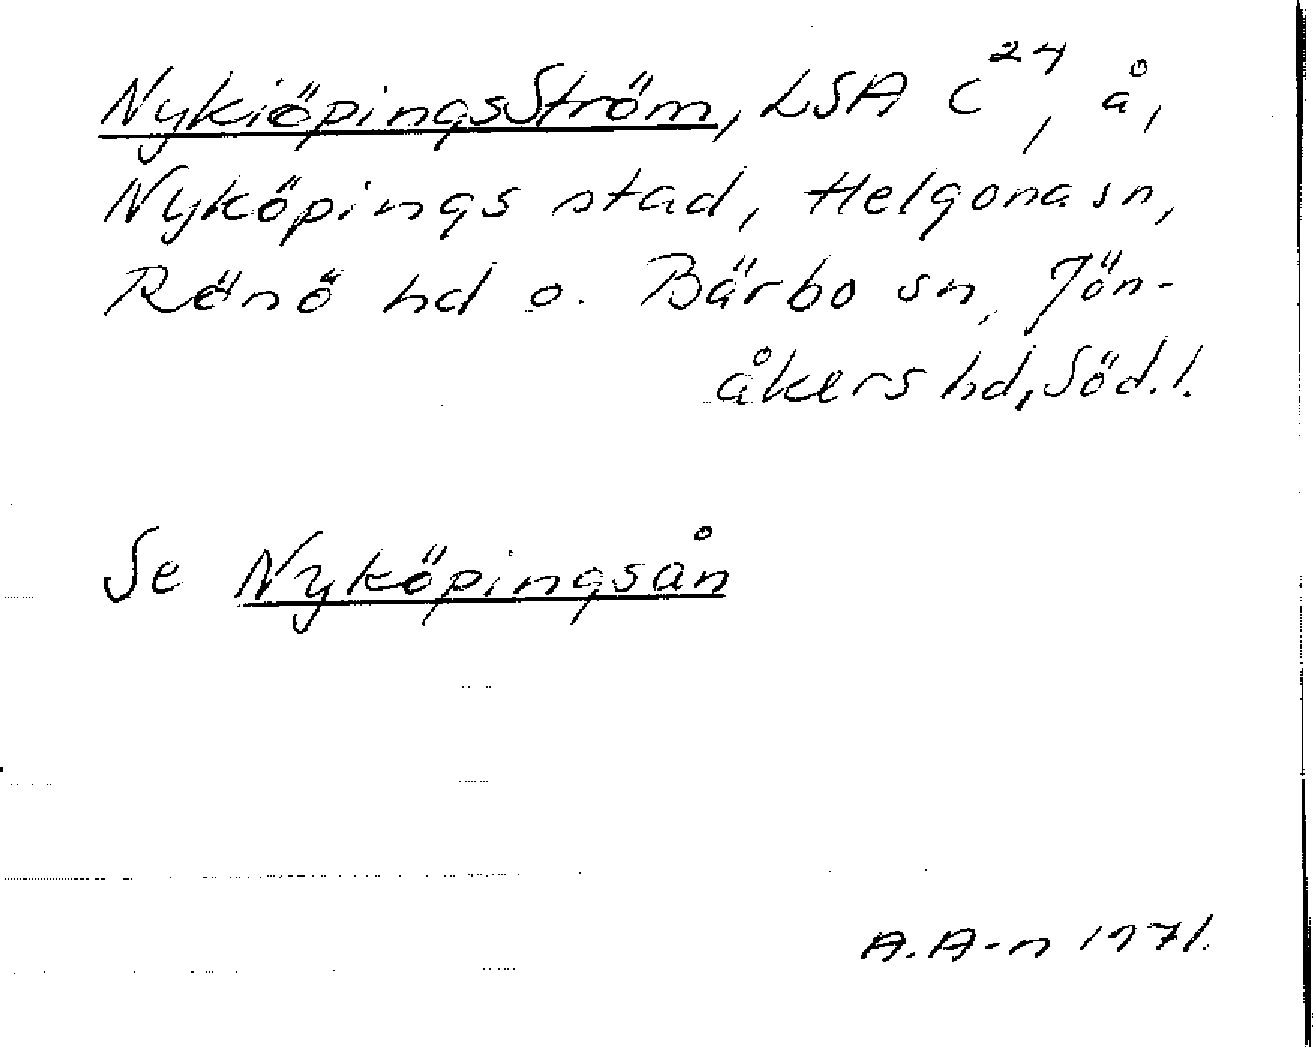 NykiöpingsStröm, LSA C²⁴, å,
Nyköpings stad, Helgona sn,
Rönö hd o. Bärbo sn, Jön-
åkers hd, Söd.l.
Se Nyköpingsån
A.A-n 1971.